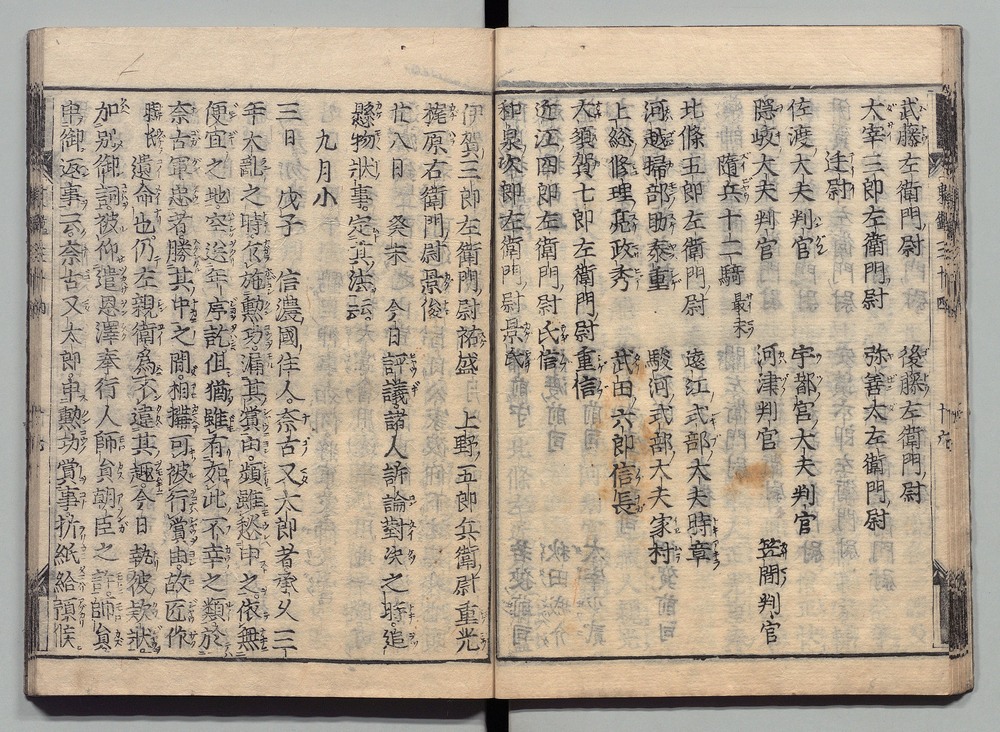 武藤左衛門尉　後藤左衛門尉
大宰三郎左衛門尉　弥善太左衛門尉
辻尉
佐渡大夫判官　宇都宮大夫判官
隠岐大夫判官　河津判官　笠間判官
随兵十二騎 最末
北條五郎左衛門尉　遠江式部大夫時章
河越掃部助泰重　駿河式部大夫家村
上総修理亮政秀　武田六郎信長
大須賀七郎左衛門尉重信
近江四郎左衛門尉氏信
和泉次郎左衛門尉景氏
伊賀三郎左衛門尉祐盛　上野五郎兵衛尉重光
梶原右衛門尉景俊
廿八日　癸未　今日評議諸人訴論對决之時追
懸物状事定其法云云
九月小
三日　戊子　信濃國住人奈古又太郎者承久三
年大亂之時乍施勲功漏其賞由頻雖愁申之依無
便宜之地空送年序訖但猶雖有如此不幸之類於
奈古軍忠者勝其中之間相搆可被行賞由故匠作
時氏遺命也仍左親衛為不違其趣今日執彼款状
加別御詞被仰遣恩澤奉行人師員朝臣之許師員
申御返事云奈古又太郎申勲功賞事折紙給預候